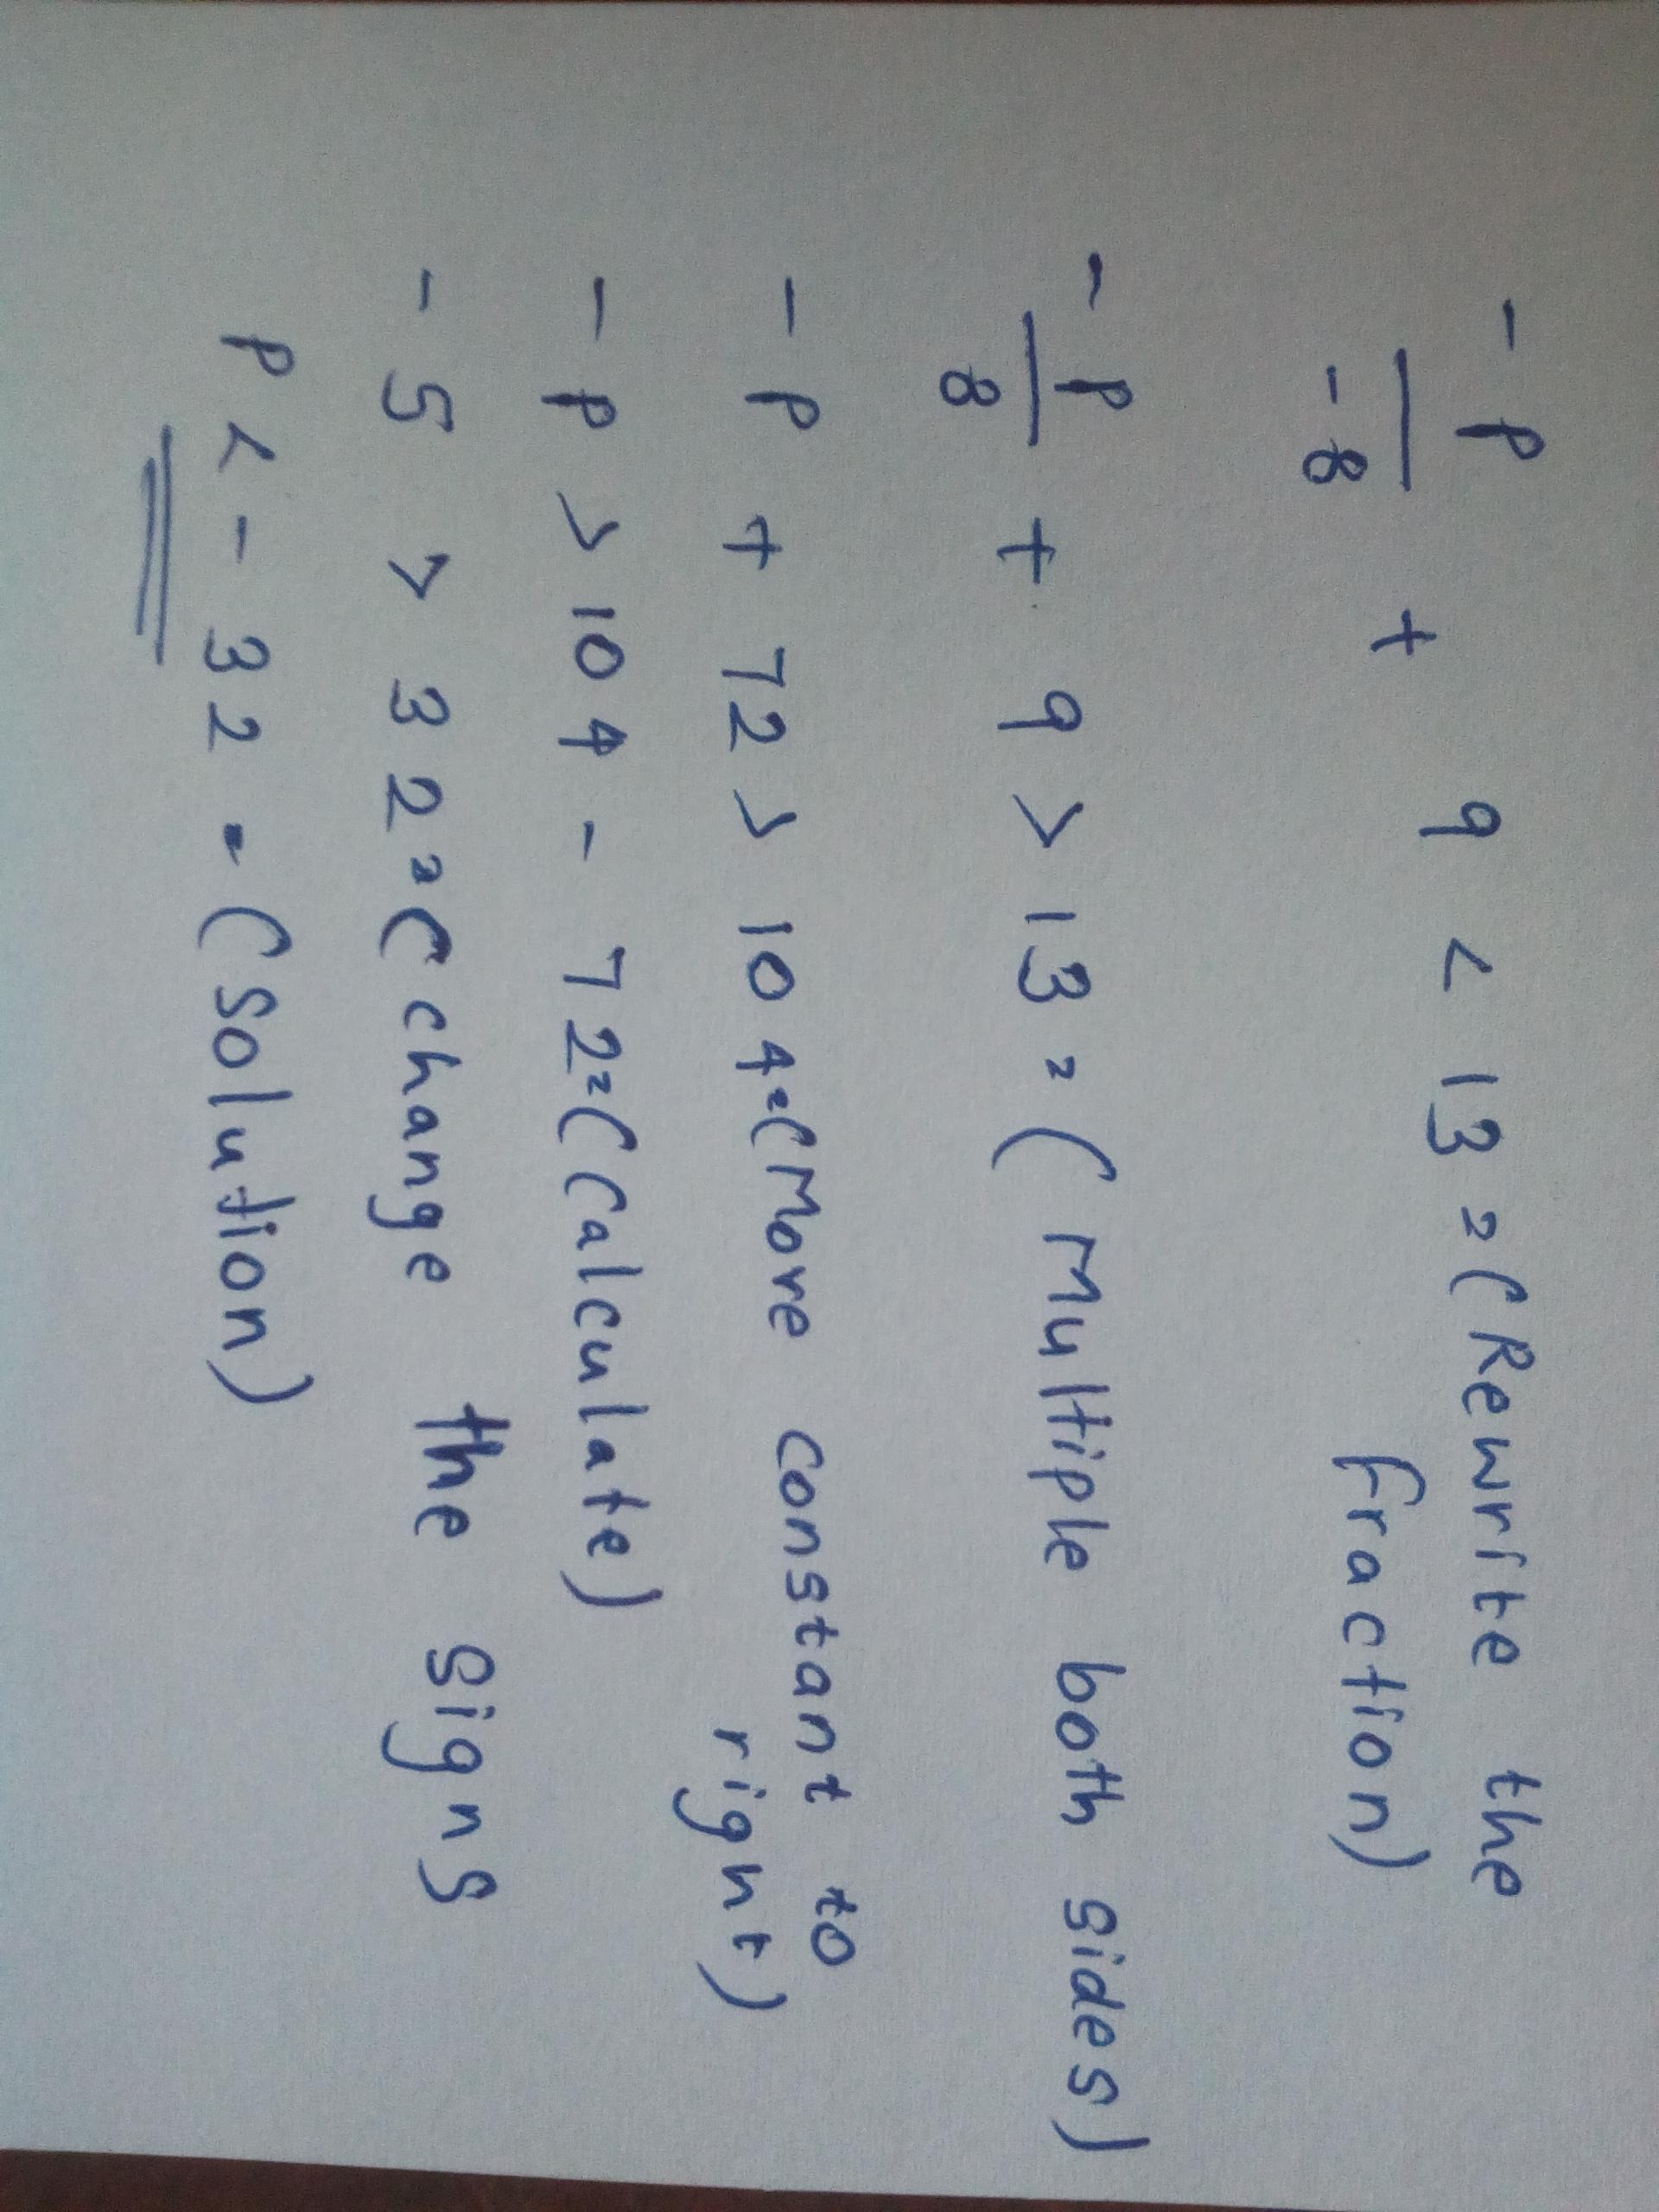 -p/-8 + 9 < 13 = (Rewrite the
fraction)
-p/8 + 9 > 13 = (Multiple both sides)
-p + 72 > 104 = (Move constant to
right)
-p > 104 - 72 = (Calculate)
-5 > 32 = (change the signs
P < -32 = (Solution)